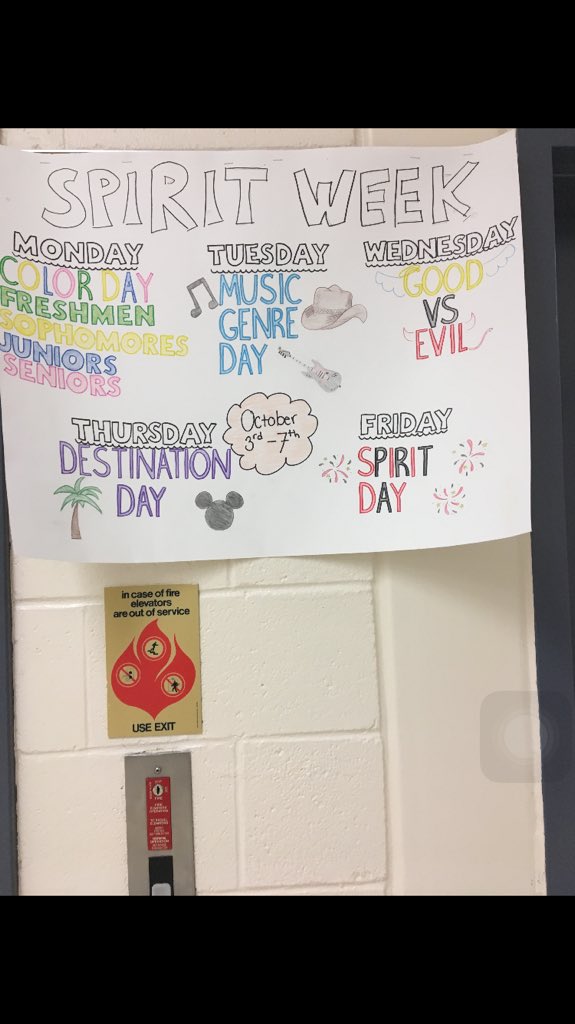 SPIRIT WEEK
MONDAY
COLOR DAY
FRESHMEN
SOPHOMORES
JUNIORS
SENIORS
TUESDAY
MUSIC
GENRE
DAY
WEDNESDAY
GOOD
VS
EVIL
THURSDAY
DESTINATION
DAY
October
3rd-7th
FRIDAY
SPIRIT
DAY
in case of fire
elevators
are out of service
USE EXIT